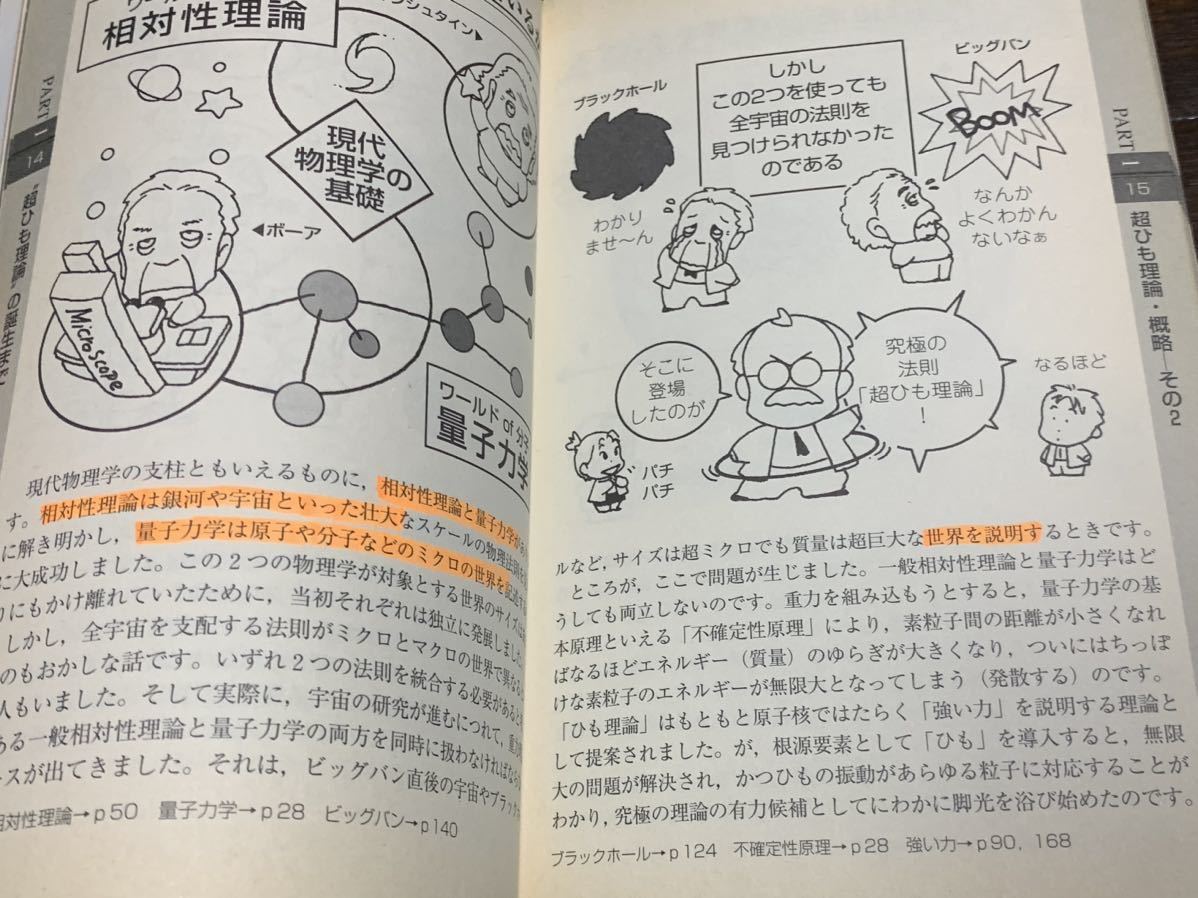 PART I
14
"超ひも理論"の誕生まで
相対性理論
シュタイン▶
現代
物理学の
基礎
◀ボーア
MicroScope
ワールド of 分子
量子力学
現代物理学の支柱ともいえるものに，相対性理論と量子力学があ
す。相対性理論は銀河や宇宙といった壮大なスケールの物理法則を
に解き明かし，量子力学は原子や分子などのミクロの世界を記述する
に大成功しました。この２つの物理学が対象とする世界のサイズは
りにもかけ離れていたために，当初それぞれは独立に発展しました。
しかし，全宇宙を支配する法則がミクロとマクロの世界で異なる
のもおかしな話です。いずれ２つの法則を統合する必要があると
人もいました。そして実際に，宇宙の研究が進むにつれて，重力
ある一般相対性理論と量子力学の両方を同時に扱わなければならな
ースが出てきました。それは，ビッグバン直後の宇宙やブラックホ
相対性理論→p50　量子力学→p28　ビッグバン→p140
PART I
15
超ひも理論・概略―その2
ブラックホール
しかし
この2つを使っても
全宇宙の法則を
見つけられなかった
のである
ビッグバン
BOOM
わかり
ませ〜ん
なんか
よくわかん
ないなぁ
そこに
登場
したのが
究極の
法則
「超ひも理論」
！
なるほど
パチ
パチ
ルなど，サイズは超ミクロでも質量は超巨大な世界を説明するときです。
ところが，ここで問題が生じました。一般相対性理論と量子力学はど
うしても両立しないのです。重力を組み込もうとすると，量子力学の基
本原理といえる「不確定性原理」により，素粒子間の距離が小さくなれ
ばなるほどエネルギー（質量）のゆらぎが大きくなり，ついにはちっぽ
けな素粒子のエネルギーが無限大となってしまう（発散する）のです。
「ひも理論」はもともと原子核ではたらく「強い力」を説明する理論と
して提案されました。が，根源要素として「ひも」を導入すると，無限
大の問題が解決され，かつひもの振動があらゆる粒子に対応することが
わかり，究極の理論の有力候補としてにわかに脚光を浴び始めたのです。
ブラックホール→p124　不確定性原理→p28　強い力→p90，168